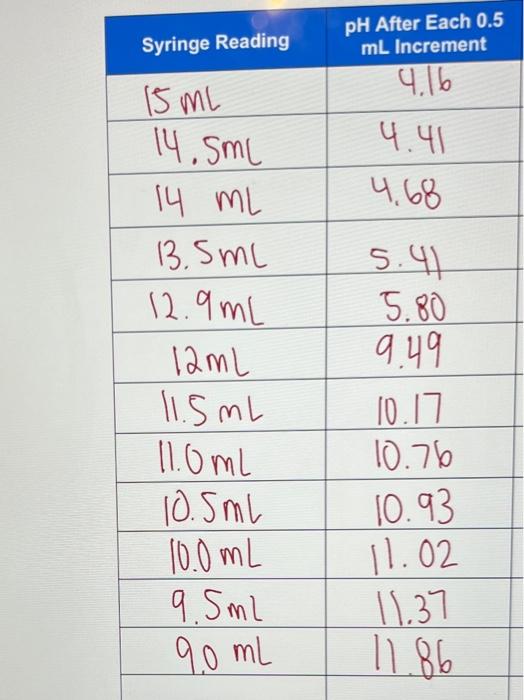 Syringe Reading
pH After Each 0.5
mL Increment
15 mL
4.16
14.5mL
4.41
14 mL
4.68
13.5mL
5.41
12.9mL
5.80
12mL
9.49
11.5mL
10.17
11.0mL
10.76
10.5mL
10.93
10.0mL
11.02
9.5mL
11.37
9.0 mL
11.86